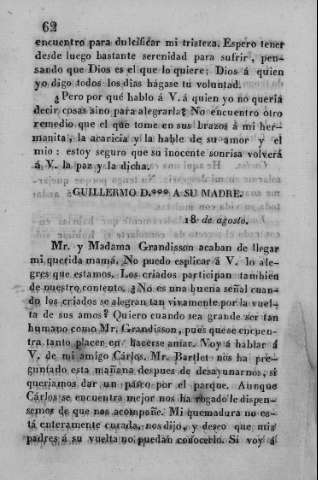 62
encuentro para dulcificar mi tristeza. Espero tener
desde luego bastante serenidad para sufrir, pen-
sando que Dios es el que lo quiere: Dios á quien
yo digo todos los dias hágase tu voluntad.
¿Pero por qué hablo á V. á quien yo no queria
decir cosas sino para alegrarla? No encuentro otro
remedio que el que tome en sus brazos á mi her-
manita, la acaricia y la hable de su amor y el
mio: estoy seguro que su inocente sonrisa volverá
á V. la paz y la dicha.
GUILLERMO D.*** A SU MADRE.
18 de agosto.
Mr. y Madama Grandisson acaban de llegar
mi querida mamá. No puedo esplicar á V. lo ale-
gres que estamos. Los criados participan tambien
de nuestro contento. ¿No es una buena señal cuan-
do los criados se alegran tan vivamente por la vuel-
ta de sus amos? Quiero cuando sea grande ser tan
humano como Mr. Grandisson, pues que se encuen-
tra tanto placer en hacerse amar. Voy á hablar á
V. de mi amigo Cárlos. Mr. Bartlet nos ha pre-
guntado esta mañana despues de desayunarnos, si
queriamos dar un paseo por el parque. Aunque
Cárlos se encuentra mejor nos ha rogado le dispen-
semos de que nos acompañe. Mi quemadura no es-
tá enteramente curada, nos dijo, y deseo que mis
padres á su vuelta no puedan conocerlo. Si voy á